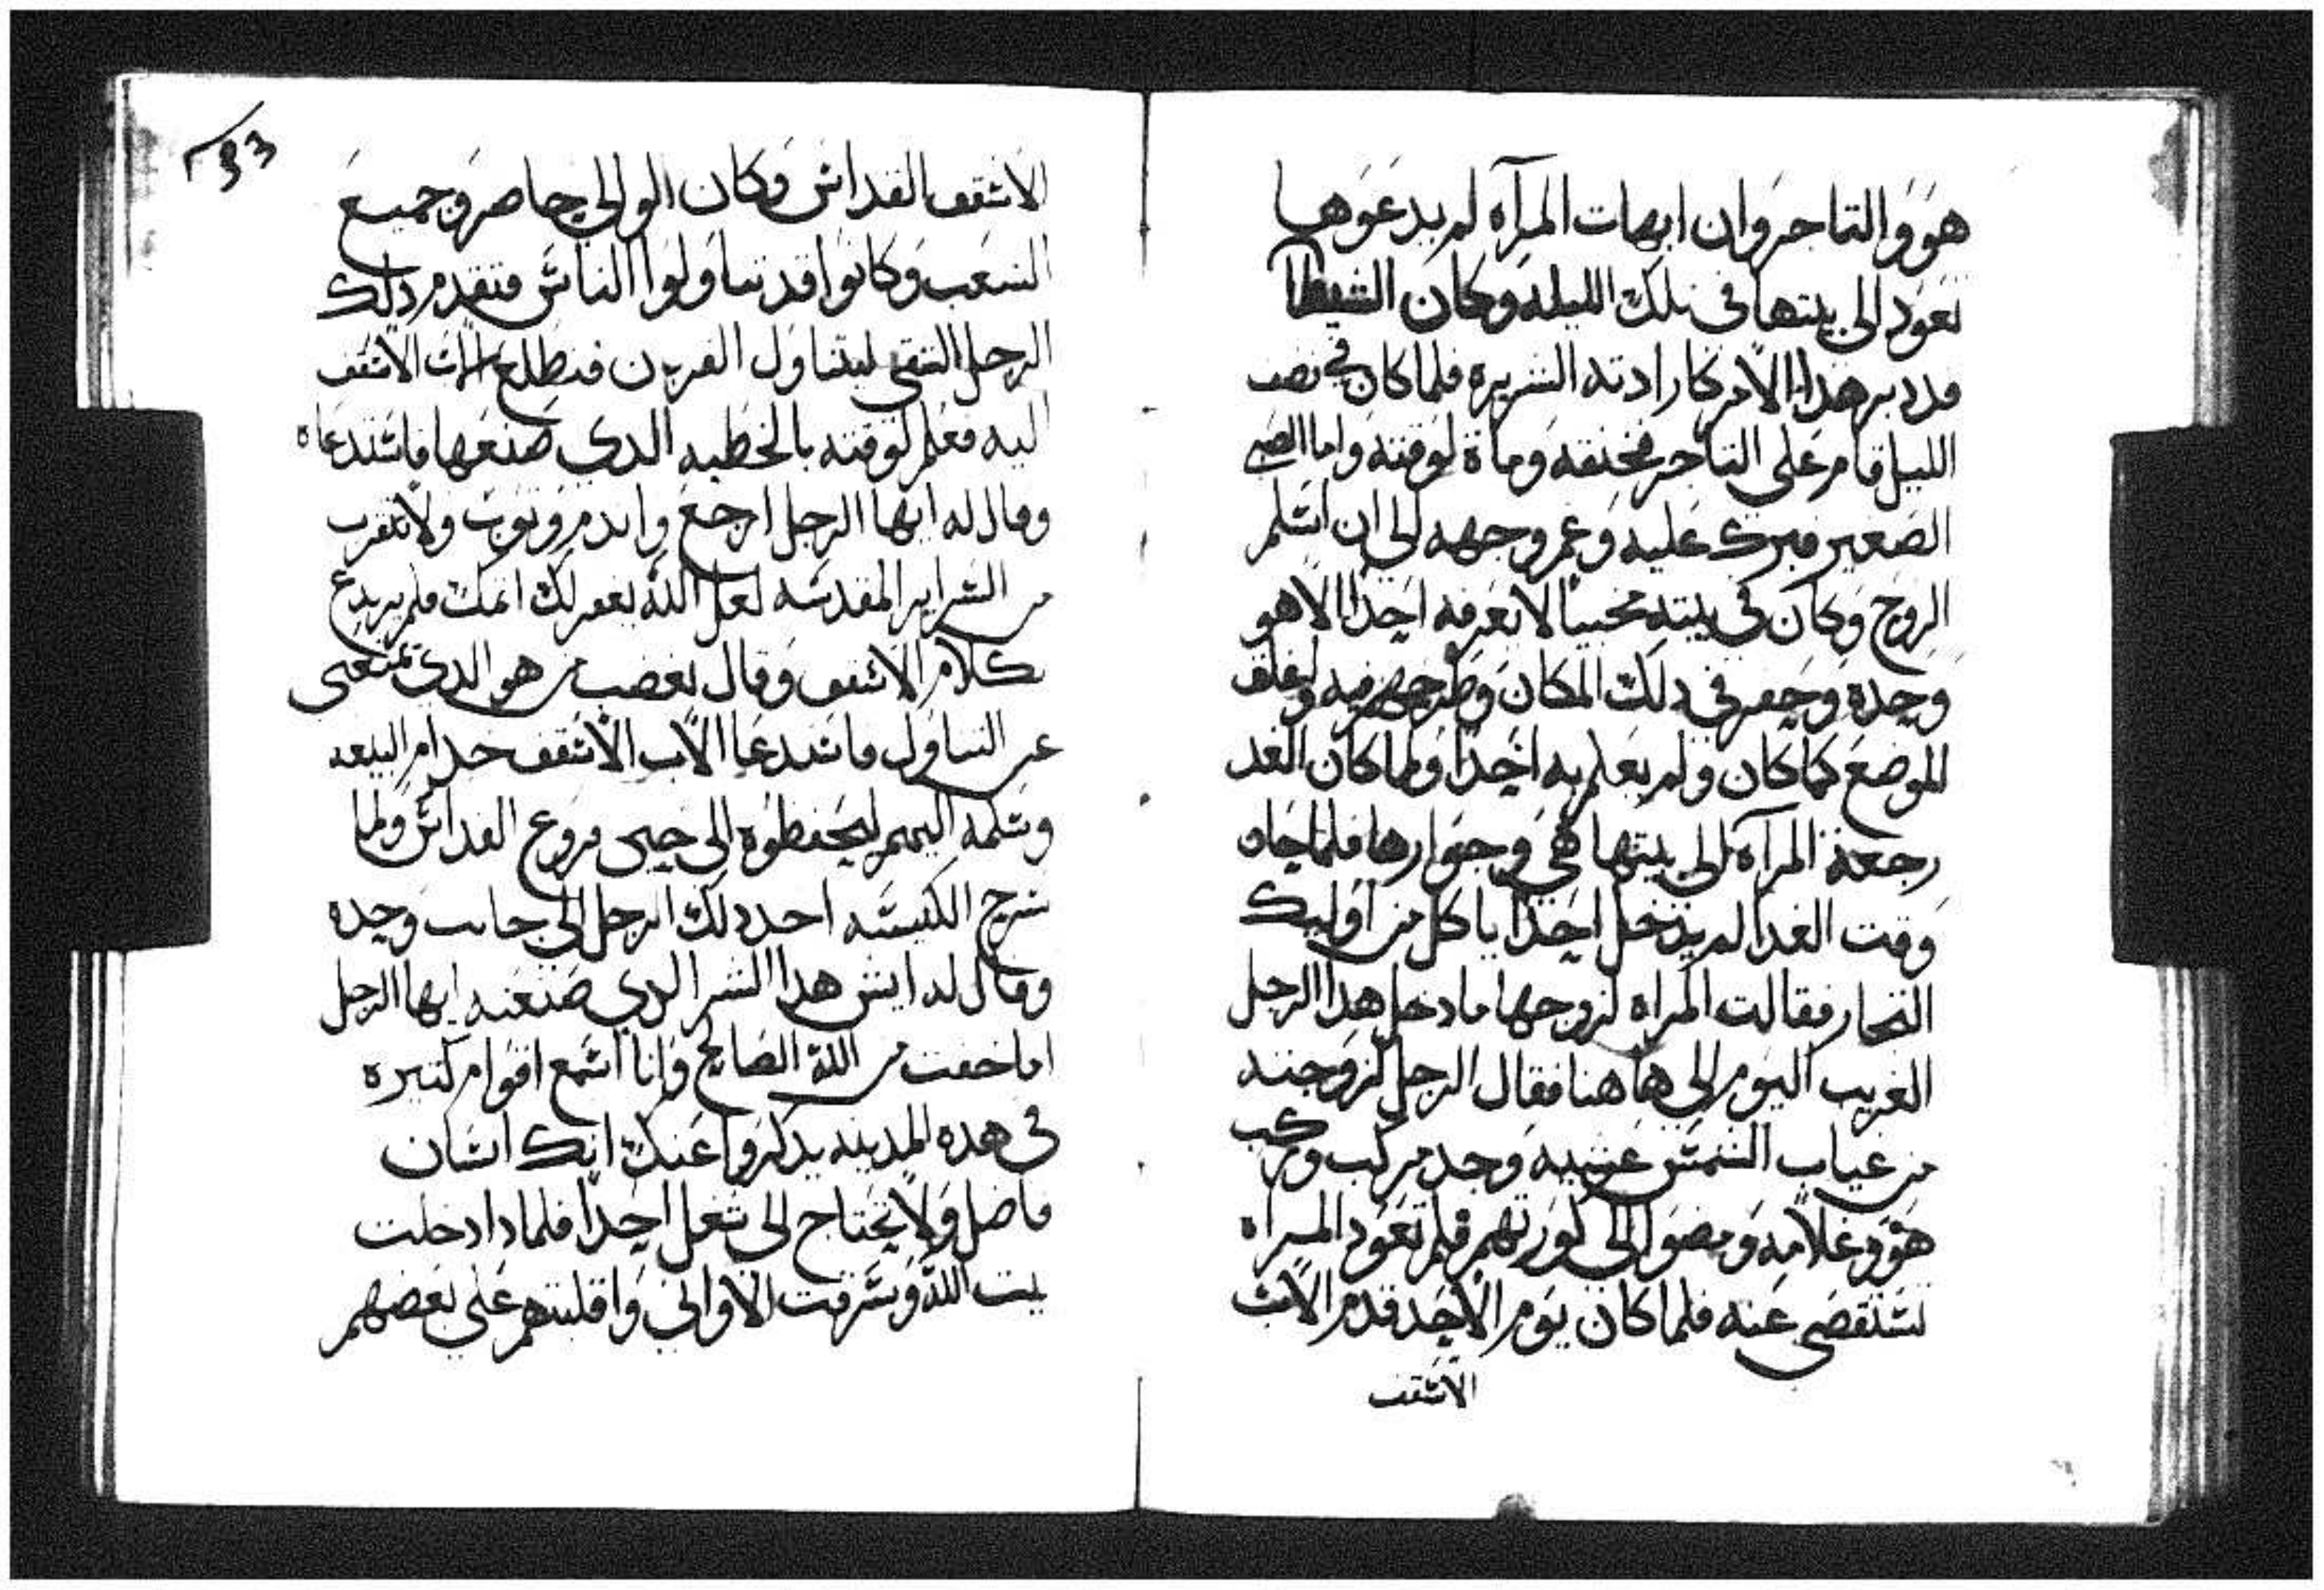 هو والتاجر وان ابهات المرآه لم يدعوها
تعود الى بيتها في تلك الليله وكان الشيطان
قد دبر هذا الامر كارادته الشريره فلما كان في نصف
الليل قام على التاجر فخنقه وماة لوقته واما الصبي
الصغير فبرك عليه وغم وجهه الى ان اسلم
الروح وكان في بيته مخبيا لا يعرفه احدا الا هو
وحده وحفر في دلك المكان وطرحهم فيه وغلف
الموضع كما كان ولم يعلم به احدا ولما كان الغد
رجعة المرآه الى بيتها هي وجوارها فلما جاه
وقت الغدا لم يدخل احدا ياكل من اوليك
التجار فقالت المراه لزوجها ما دخل هدا الرجل
الغريب اليوم الى هاهنا فقال الرجل لزوجته
من غياب الشمس عشيه وجد مركب وركب
هو وغلامه ومضوا الى كورتهم فلم تعود المراه
تستقصى عنه فلما كان يوم الاحد قدم الاب
الاسقف
الاسقف القداس وكان الوالي حاضر وجميع
الشعب وكانوا قد تناولوا الناس فتقدم دلك
الرجل الشقي ليتناول القربان فتطلع الاب الاسقف
اليه فعلم لوقته بالخطيه الدى صنعها فاستدعاه
وقال له ايها الرجل ارجع واندم وتوب ولا تتقرب
من السراير المقدسه لعل الله يغفر لك اتمك فلم يريدع
كلام الاسقف وقال بغضب من هو الدي يمنعني
عن التناول فاستدعا الاب الاسقف خدام البيعه
وسلمه اليهم ليحفظوه الى حين فروغ القداس ولما
سرح الكنيسه احد دلك الرجل الى جانب وحده
وقال له ايش هدا الشر الدي صنعته ايها الرجل
اما خفت من الله الصالح وانا اسمع اقوام كتيره
في هده المدينه يدكروا عنك انك انسان
فاضل ولا تحتاج الى شغل احدا فلمادا دخلت
بيت الله وسرقت الاواني واقلبتهم على بعضهم